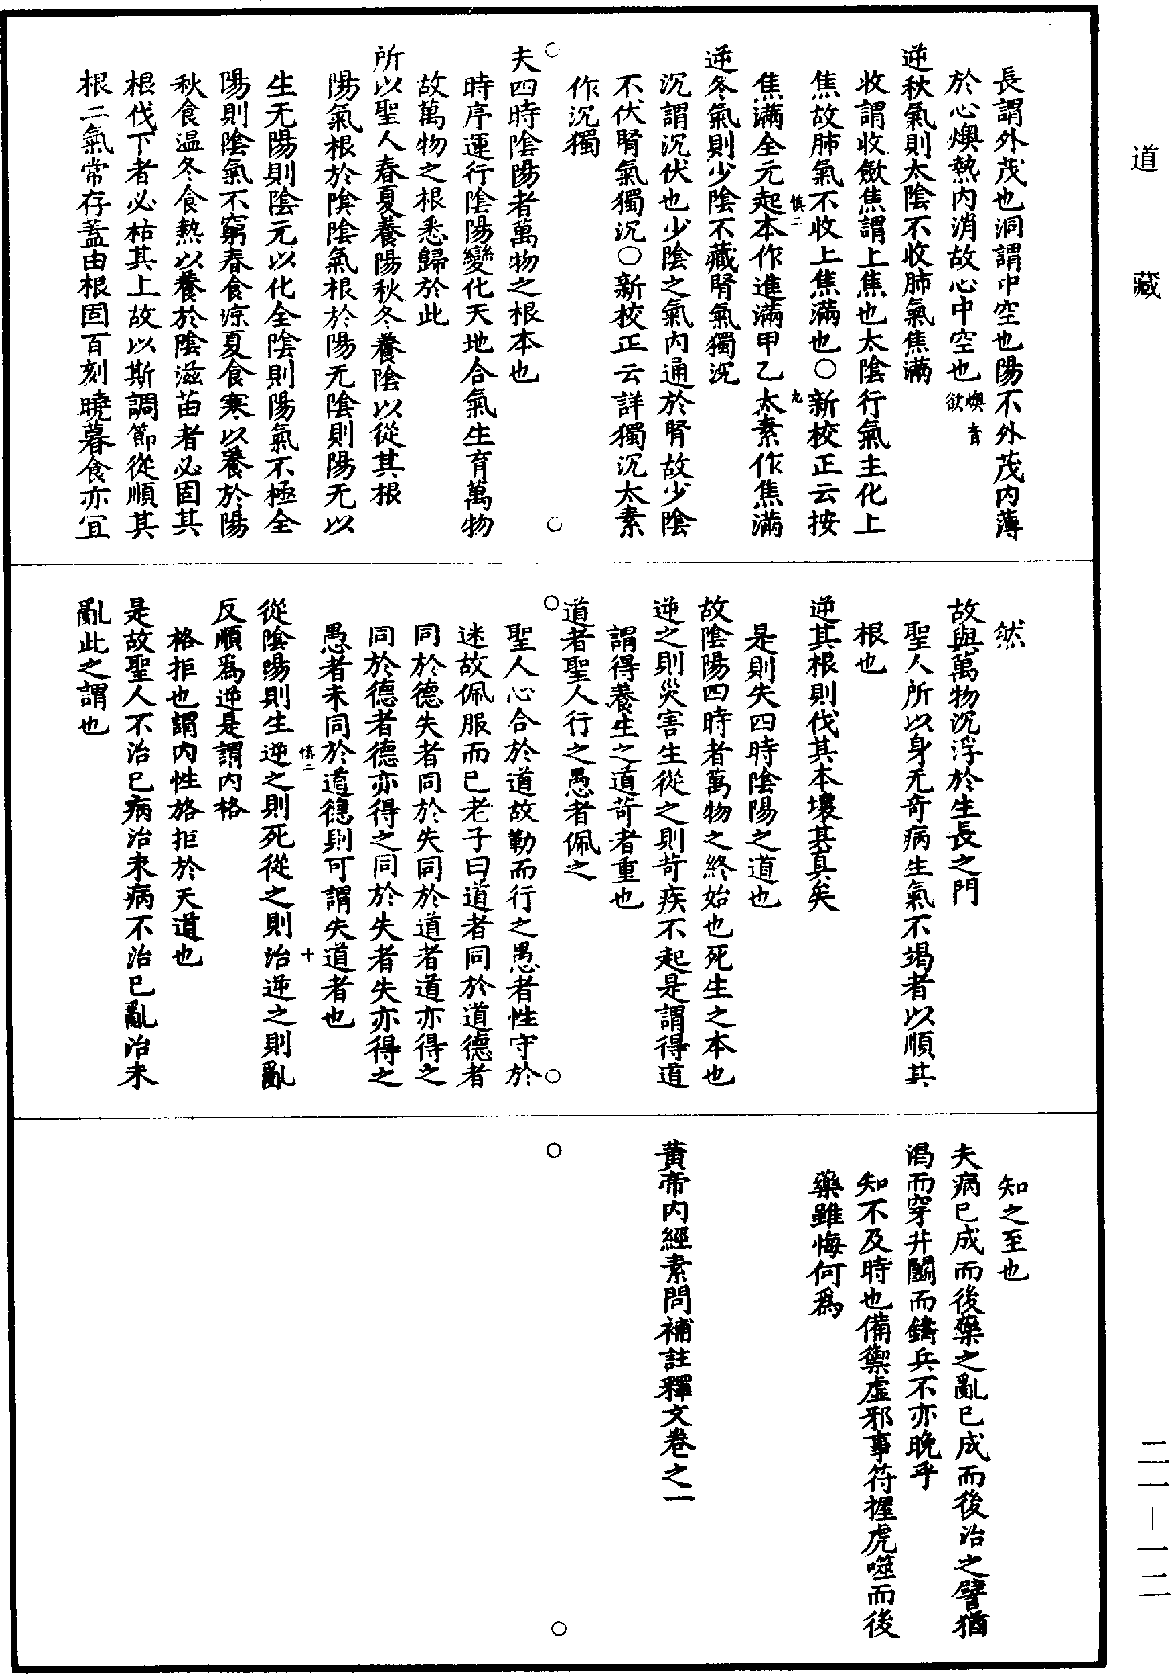 道藏
長謂外茂也洞謂中空也陽不外茂內薄
於心燠熱內消故心中空也燠音欲
逆秋氣則太陰不收肺氣焦滿
收謂收斂焦謂上焦也太陰行氣主化上
焦故肺氣不收上焦滿也○新校正云按
慎二
九
焦滿全元起本作進滿甲乙太素作焦滿
逆冬氣則少陰不藏腎氣獨沉
沉謂沉伏也少陰之氣內通於腎故少陰
不伏腎氣獨沉○新校正云詳獨沉太素
作沉獨
夫四時陰陽者萬物之根本也
時序運行陰陽變化天地合氣生育萬物
故萬物之根悉歸於此
所以聖人春夏養陽秋冬養陰以從其根
陽氣根於陰陰氣根於陽无陰則陽无以
生无陽則陰无以化全陰則陽氣不極全
陽則陰氣不窮春食凉夏食寒以養於陽
秋食温冬食熱以養於陰滋苗者必固其
根伐下者必枯其上故以斯調節從順其
根二氣常存蓋由根固百刻曉暮食亦宜
然
故與萬物沉浮於生長之門
聖人所以身无奇病生氣不竭者以順其
根也
逆其根則伐其本壞其真矣
是則失四時陰陽之道也
故陰陽四時者萬物之終始也死生之本也
逆之則災害生從之則苛疾不起是謂得道
謂得養生之道苛者重也
道者聖人行之愚者佩之
聖人心合於道故勤而行之愚者性守於
迷故佩服而已老子曰道者同於道德者
同於德失者同於失同於道者道亦得之
同於德者德亦得之同於失者失亦得之
愚者未同於道德則可謂失道者也
慎二
十
從陰陽則生逆之則死從之則治逆之則亂
反順爲逆是謂內格
格拒也謂內性格拒於天道也
是故聖人不治已病治未病不治已亂治未
亂此之謂也
知之至也
夫病已成而後藥之亂已成而後治之譬猶
渴而穿井鬭而鑄兵不亦晚乎
知不及時也備禦虛邪事符握虎噬而後
藥雖悔何爲
黃帝內經素問補註釋文卷之一
二一—一二